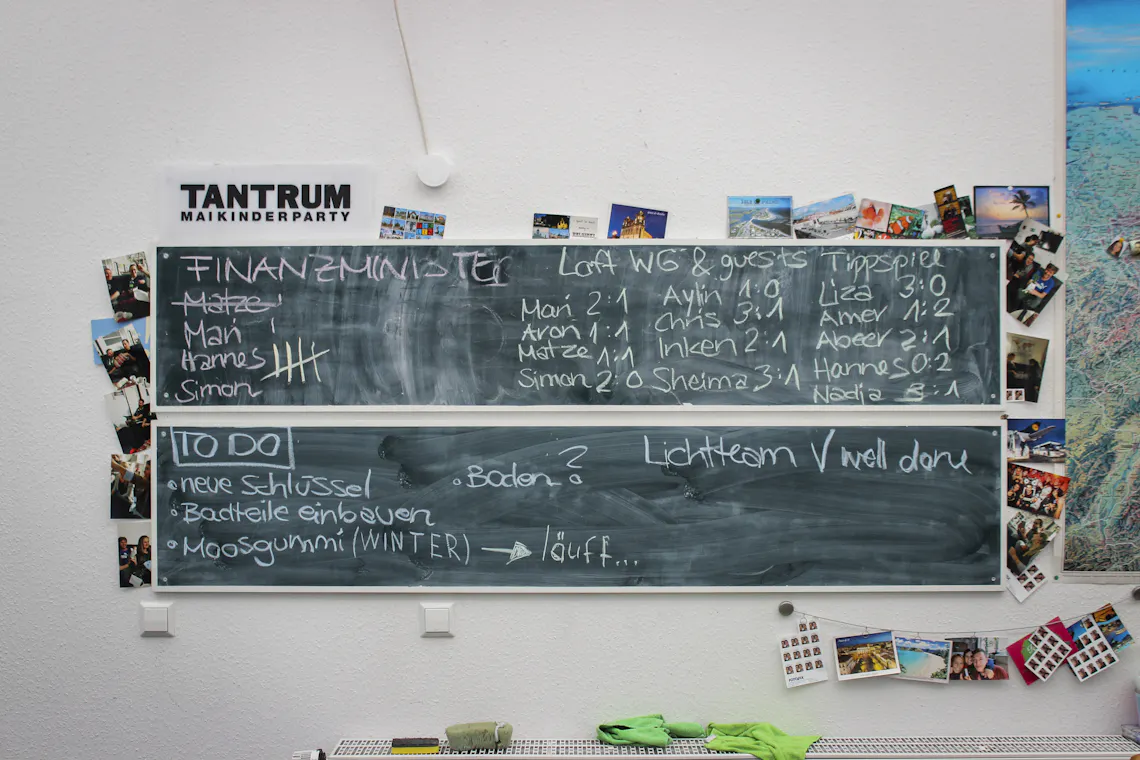 TANTRUM
MAIKINDERPARTY
FINANZMINISTER
Matze
Mari
Hannes
Simon
Loft WG & guests Tippspiel
Mari 2:1
Aron 1:1
Matze 1:1
Simon 2:0
Aylin 1:0
Chris 3:1
Inken 2:1
Sheima 3:1
Liza 3:0
Amer 1:2
Abeer 2:1
Hannes 0:2
Nadja 3:1
TO DO
• neue Schlüssel
• Badteile einbauen
• Moosgummi (WINTER) → läuft...
• Boden ?
Lichtteam √ well done